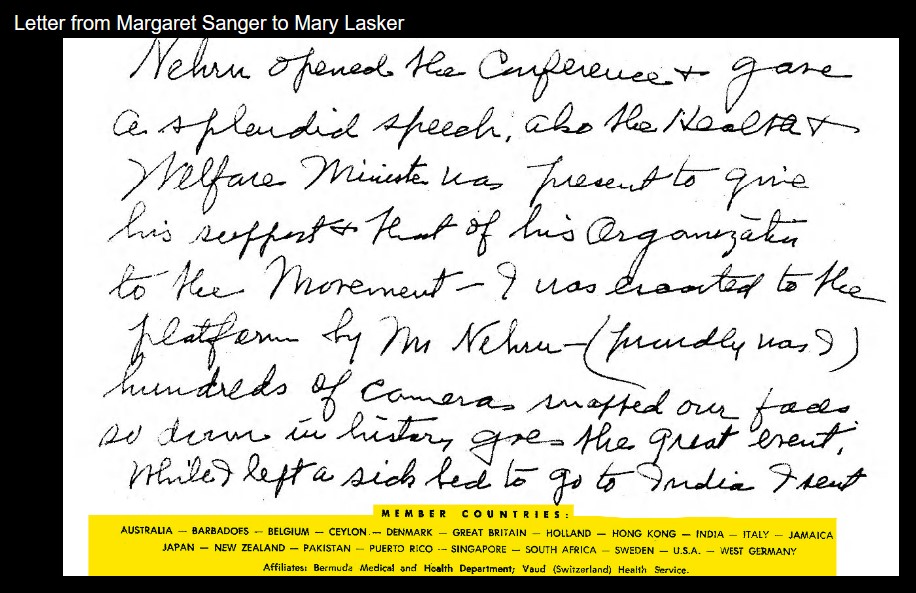 Letter from Margaret Sanger to Mary Lasker
Nehru opened the Conference + gave
a splendid speech, also the Health +
Welfare Minister was present to give
his support + that of his Organization
to the Movement – I was escorted to the
platform by Mr Nehru – (proudly was I)
hundreds of cameras snapped our faces
so down in history goes the great event.
While I left a sick bed to go to India I went
MEMBER COUNTRIES:
AUSTRALIA — BARBADOES — BELGIUM — CEYLON — DENMARK — GREAT BRITAIN — HOLLAND — HONG KONG — INDIA — ITALY — JAMAICA
JAPAN — NEW ZEALAND — PAKISTAN — PUERTO RICO — SINGAPORE — SOUTH AFRICA — SWEDEN — U.S.A. — WEST GERMANY
Affiliates: Bermuda Medical and Health Department; Vaud (Switzerland) Health Service.